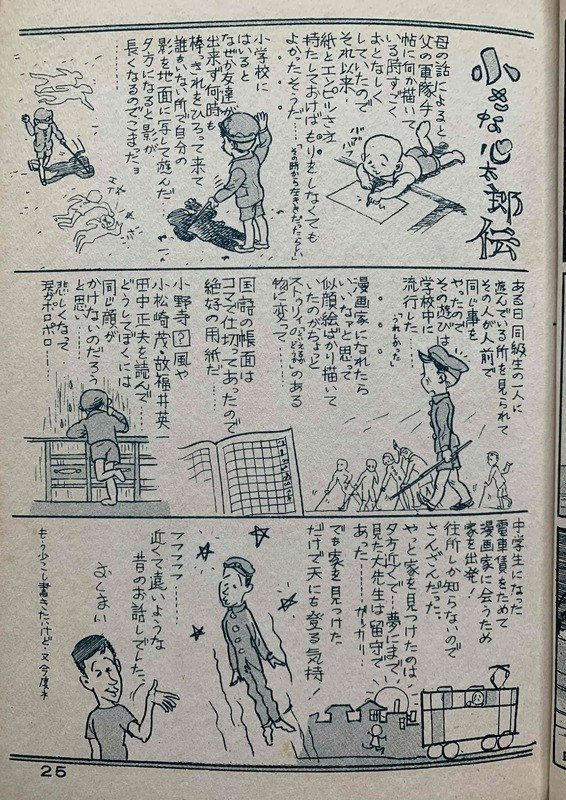 小さな心太郎伝
母の話によると
父の軍隊手
帖に何か描いて
いる時すごく
おとなしく
していたので
それ以来
紙とエンピツさえ
持たしておけばもりをしなくても
よかったそうだ……
「その時から左ききだったらしい」
小学校に
はいると
なぜか友達が
出来ず何時も
棒っきれをひろって来て
誰もいない所で自分の
影を地面に写して遊んだ……
夕方になると影が
長くなるのでこまったョ
ある日同級生の一人に
遊んでいる所を見られて
その人が人前で
同じ事を
やったので
その遊びは
学校中に
流行した……
漫画家になれたら
いいなァと思って
似顔絵ばかり描いて
いたのがちょっと
ストゥリィのある
物に変って……
国語の帳面は
コマで仕切ってあったので
絶好の用紙だ……
小野寺?風や
小松崎茂・故福井英一
田中正夫を読んで
どうしてぼくには
同じ顔が
かけないのだろう
と思い……
悲しくなって
涙がポロポロ……
中学生になった
電車賃をためて
漫画家に会うため
家を出発!
住所しか知らないので
さんざんだった……
やっと家を見つけたのは
夕方近くで…夢にまで
見た大先生は留守で
あった……ガッカリ…
でも家を見つけた
だけで天にも登る気持!
フフフフ……
近くて遠いような
昔のお話しでした。
さぐまい
もう少し書きたいけど・又今度ネ
25